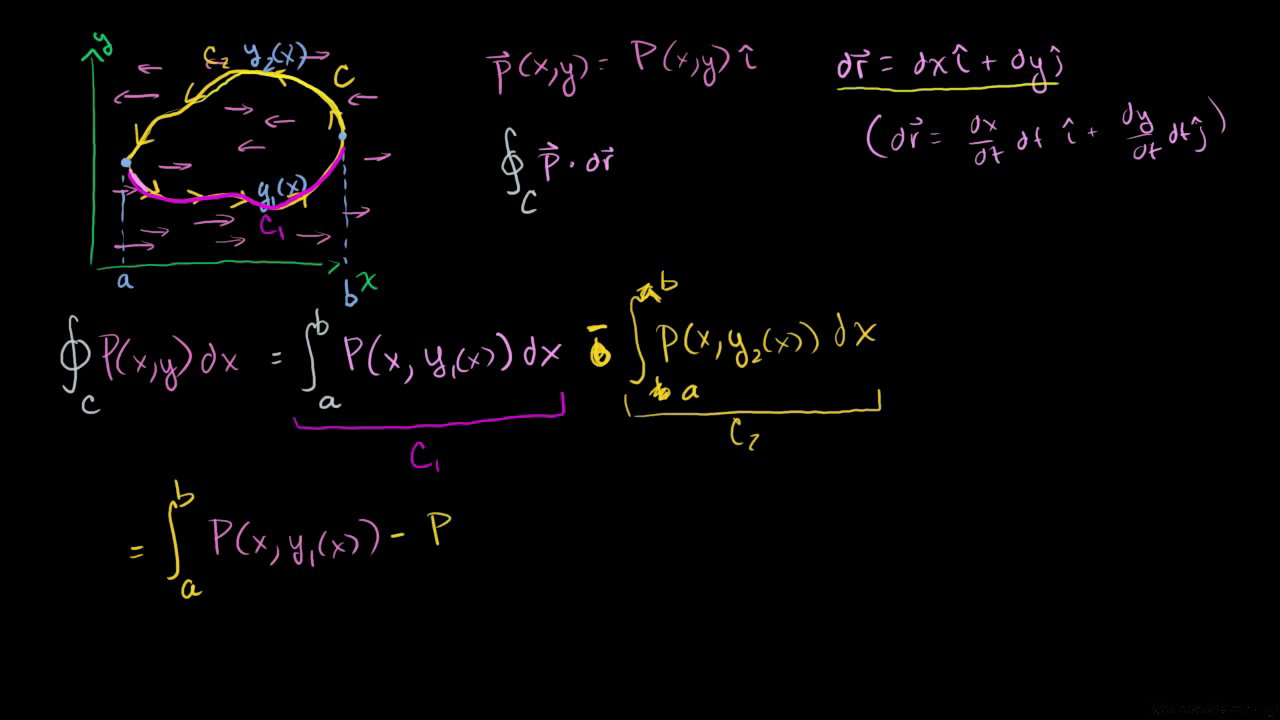 y
C₂ y₂(x)
C
y₁(x)
C₁
a
b x
p⃗(x,y) = P(x,y) î
dr⃗ = dx î + dy ĵ
(dr⃗ = dx/dt dt î + dy/dt dt ĵ)
∮_C p⃗ · dr⃗
∮_C P(x,y) dx = ∫_a^b P(x, y₁(x)) dx − ∫_a^b P(x, y₂(x)) dx
C₁ C₂
= ∫_a^b P(x, y₁(x)) − P